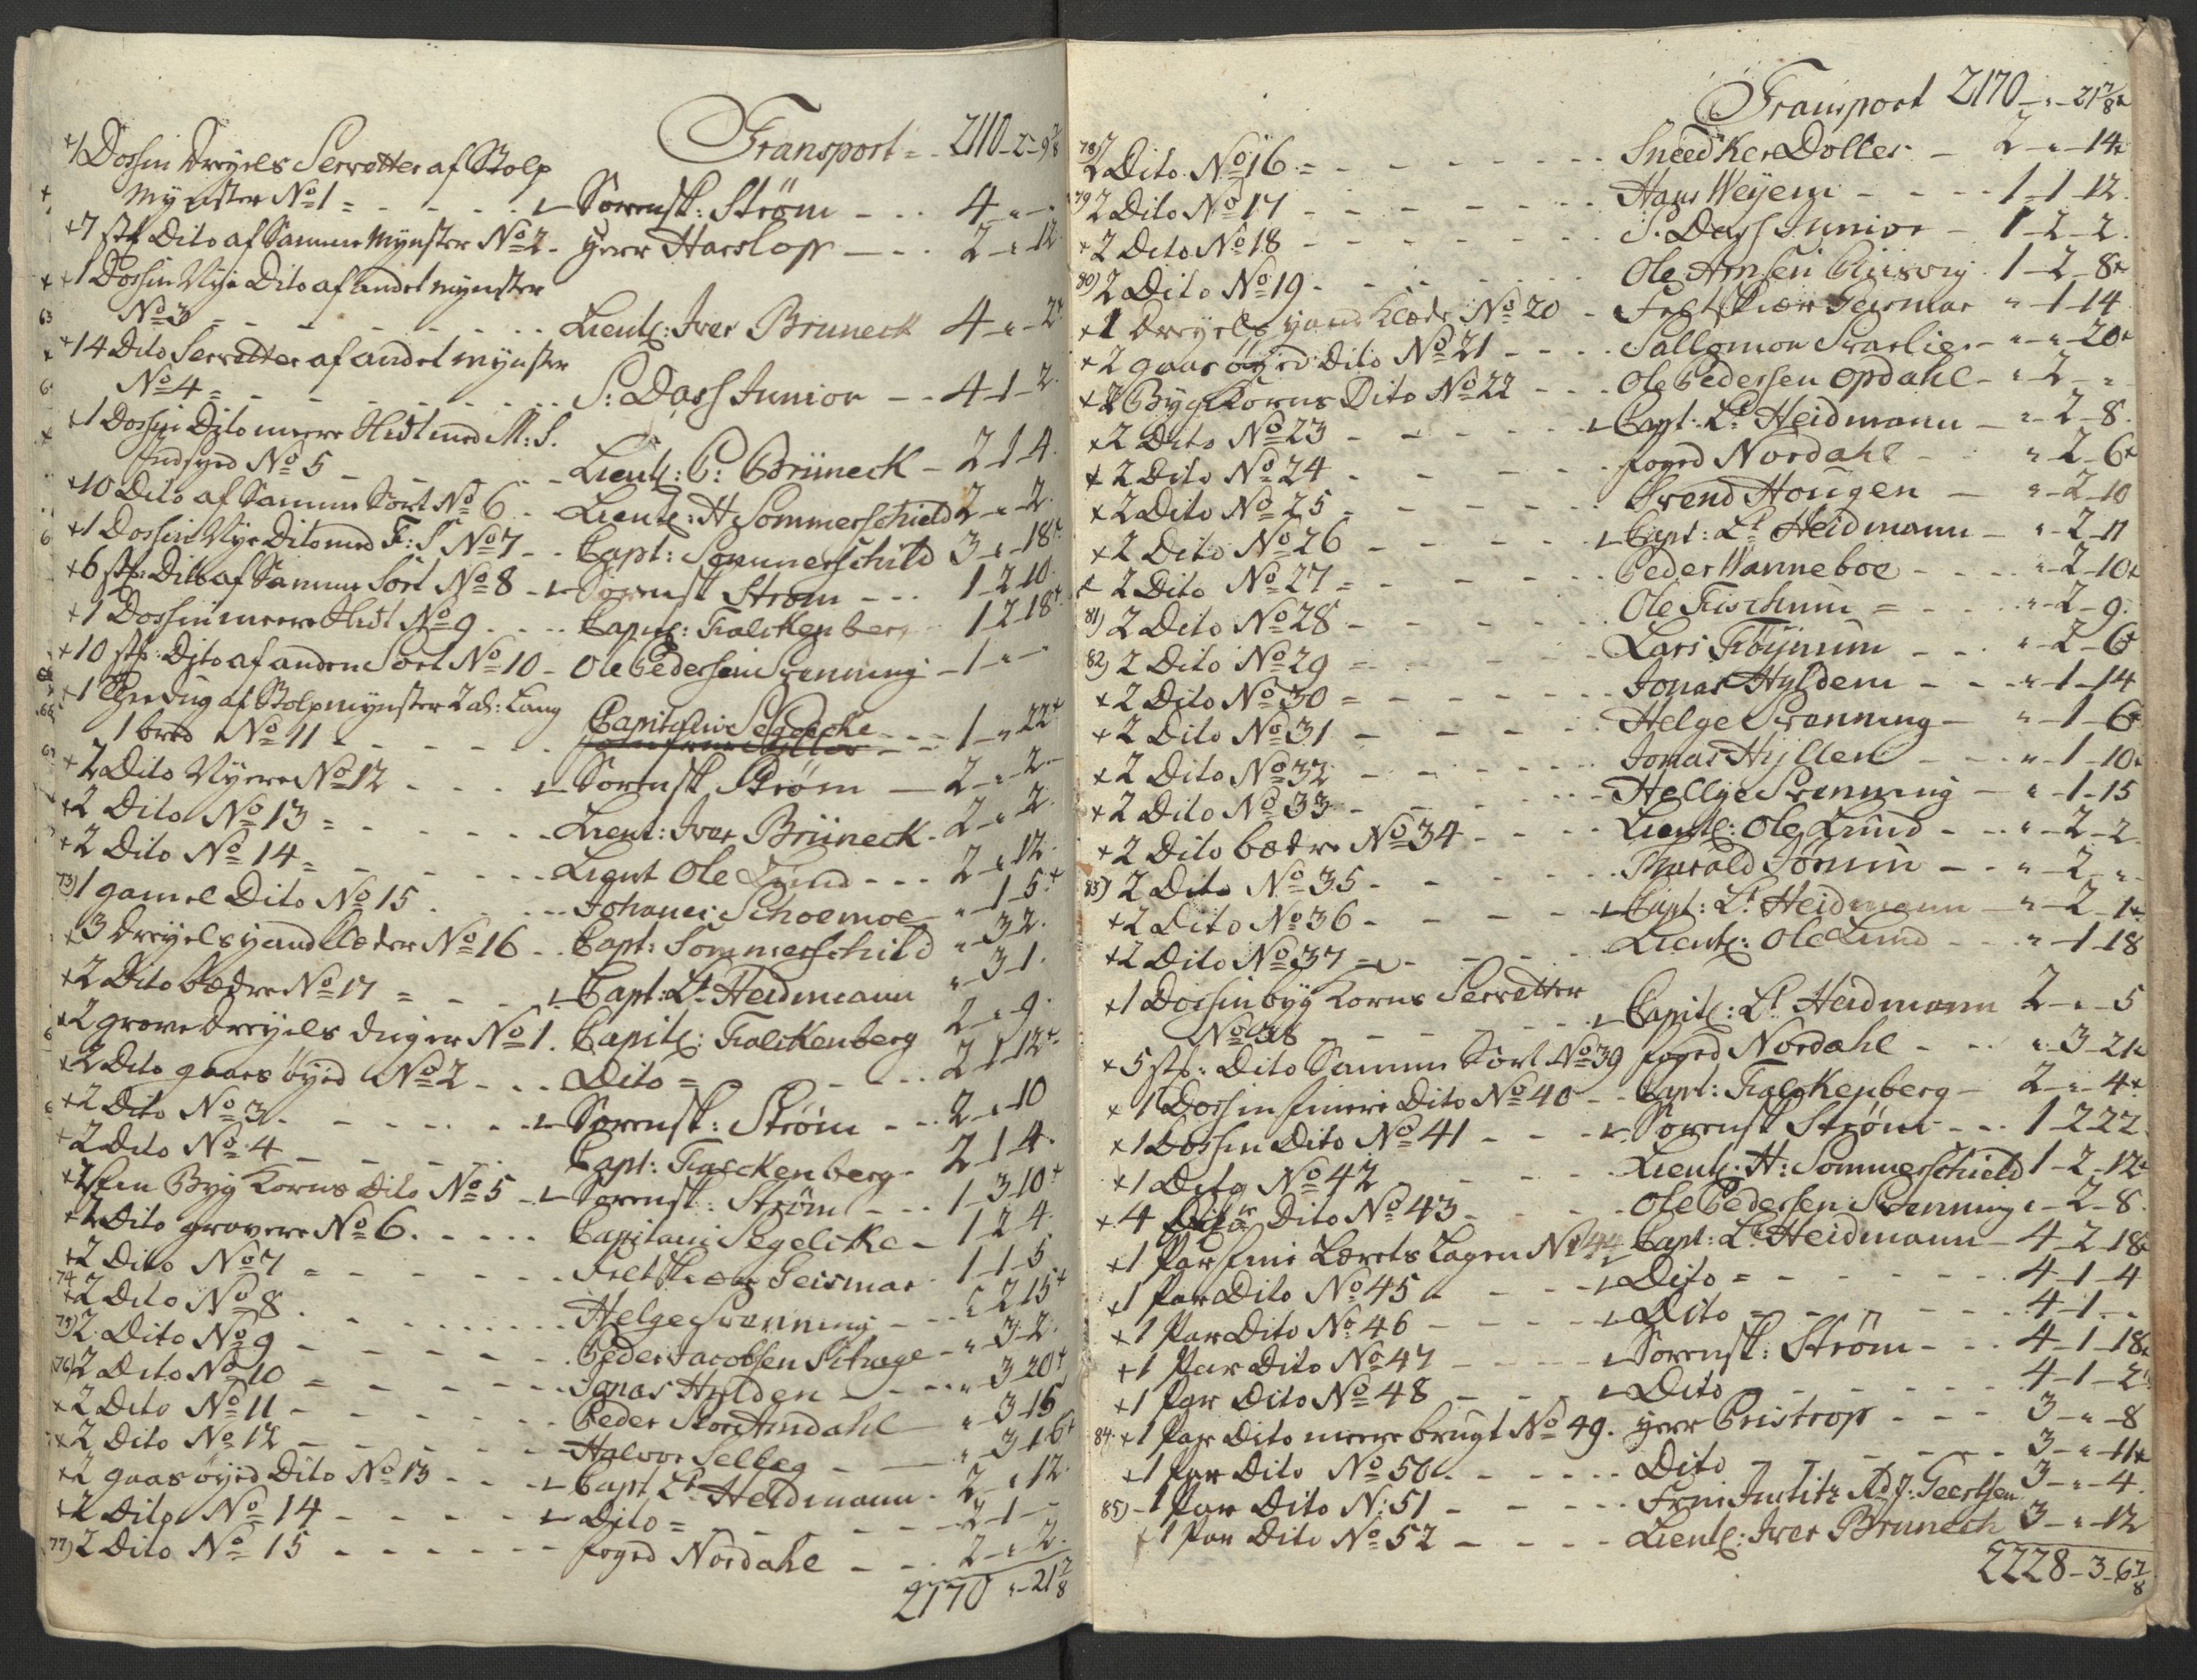 Transport = - 2110 - 2 - 9 7/8
+ 1 Dossin Dreyels Servetter af Stolp
Mynster No 1 = - - - Sorensk: Strøm - - - 4 - " -
+ 7 stk Dito af Samme Mynster No 2 - Herr Harslop - - - 2 - " - 12
+ 1 Dossin Nye Dito af andet mynster
63 No 3 = - - - Lieutl: Iver Bruneck 4 - " - 2
+ 14 Dito Servetter af andet mynster
No 4 = - - - S: Dass Junior - - 4 - 1 - 2
+ 1 Dossin Dito meere Slidt med M: S.
Indsyed No 5 - - - Lieutl: C: Brüneck - 2 1 4
+ 10 Dito af Samme Sort No 6 - - Lieutl: H Sommerschield 2 - " - 2
+ 1 Dossin Nye Dito med F: S No 7 - - Capt: Sommerschild 3 - " - 18
+ 6 stk: Dito af Samme Sort No 8 - Sorensk Strøm - - - 1 - 2 - 10
+ 1 Dossin meere Slidt No 9 - - - Capitl: Falckenberg - 1 2 18
+ 10 stk: Dito af anden Sort No 10 - Ole Pedersen Svenning - 1 - " -
+ 1 Dug af Stolpmynster 2 al: Lang
1 bred No 11 - - - Capitain Segelcke - - - 1 - " 22
+ 2 Dito Nyere No 12 - - - Sorensk Strøm - 2 - " - 2
+ 2 Dito No 13 = - - - Lieut: Iver Brüneck - 2 - " - 2
+ 2 Dito No 14 = - - - Lieut Ole Lund - - - 2 - " 12
73) 1 gamel Dito No 15 - - - Johannes Schoemoe - " - 1 - 5
+ 3 Dreyels Handklæder No 16 - - Capt: Sommerschild " 3 2
+ 2 Dito bædre No 17 = - - - Capt: Lt Heidmann " 3 1
+ 2 grove dreyels duger No 1. Capitl: Falckenberg 2 - " 9
+ 2 Dito gaasøyed No 2 - - - Dito = - - - 2 1 12
+ 2 Dito No 3 - - - Sorensk: Strøm - - - 2 - " 10
+ 2 Dito No 4 - - - Capt: Falckenberg - 2 1 4
+ 2 Fin Byg Korns Dito No 5 - Sorensk: Strøm - - - 1 - 3 10
+ 2 Dito grovere No 6 - - - Capitain Segelcke - 1 2 4
+ 2 Dito No 7 = - - - Feltskær Geismar - 1 1 5
74 + 2 Dito No 8 - - - Helge Svenning - - " 2 15
75) 2 Dito No 9 - - - Peder Jacobsen - " 3 2
76) 2 Dito No 10 = - - - Jonas Hylden - - - " 3 20
+ 2 Dito No 11 - - - Peder Amdahl " 3 15
+ 2 Dito No 12 - - - Halvor Selleg - - " 3 16
+ 2 gaasøyed Dito No 13 - - - Capt Lt Heidmann - 2 - " 12
+ 2 Dito No 14 - - - Dito = - - - 2 1 -
77) 2 Dito No 15 - - - foged Nordahl - - - 2 - " 2
2170 " - 21 7/8
Transport 2170 - " - 21 7/8
78) 2 Dito No 16 = - - - Sneedker Dolles - 2 - " - 14
79 2 Dito No 17 - - - Hans Weyem - - - 1 - 1 - 12
+ 2 Dito No 18 - - - S: Dass Junior - 1 - 2 - 2
80) 2 Dito No 19 - - - Ole Arnsen 1 - 2 - 8
+ 1 Dreyels Hand Klæde No 20 - Feltskiær Geismar " - 1 - 14
+ 2 gaasøyed Dito No 21 - - - Sallomon - " - " - 20
+ 2 Byg Korns Dito No 22 - - Ole Pedersen Opdahl - " 2 - "
+ 2 Dito No 23 - - - Capt: Lt Heidmann - " - 2 - 8
+ 2 Dito No 24 - - - foged Nordahl - " - 2 - 6
+ 2 Dito No 25 - - - Svend Hougen - " - 2 - 10
+ 2 Dito No 26 - - - Capt: Lt Heidmann - " - 2 - 11
+ 2 Dito No 27 = - - - Peder Wanneboe - - - " - 2 - 10
81) 2 Dito No 28 - - - Ole Fischum = - - - " - 2 - 9
82) 2 Dito No 29 = - - - Lars - - - " - 2 - 6
+ 2 Dito No 30 = - - - Jonas Hyldem - - - " - 1 - 14
+ 2 Dito No 31 - - - Helge Svenning - " - 1 - 6
+ 2 Dito No 32 - - - Jonas Hyllen - - " - 1 - 10
+ 2 Dito No 33 - - - Hellge Svenning - " - 1 - 15
+ 2 Dito bædre No 34 - - - Lieutl: Ole Lund - - - " - 2 - 2
83) 2 Dito No 35 - - - Harald - - " - 2 - "
+ 2 Dito No 36 - - - Capt: Lt Heidmann - " - 2 - 1
+ 2 Dito No 37 - - - Lieutl: Ole Lund - - - " - 1 - 18
+ 1 Dossin byg Korns Servetter
No 38 - - - Capitl: Lt Heidmann 2 - " - 5
+ 5 stk: Dito Samme Sort No 39 foged Nordahl - - " - 3 - 21
+ 1 Dossin finere Dito No 40 - - Capt: Falckenberg - 2 - " - 4
+ 1 Dossin Dito No 41 - - - Sorensk Strøm - - - 1 - 2 22
+ 1 Dito No 42 - - - Lieutl: H: Sommerschield 1 - 2 - 12
+ 4 Dito No 43 - - - Ole Pedersen Svenning " - 2 - 8
+ 1 Par fine Lærets Lagen No 44 Capt: Lt Heidmann - 4 - 2 - 18
+ 1 Par Dito No 45 - - - Dito = - - - 4 - 1 - 4
+ 1 Par Dito No 46 - - - Dito = - - - 4 - 1 - "
+ 1 Par Dito No 47 - - - Sorensk: Strøm - - - 4 - 1 - 18
+ 1 Par Dito No 48 - - - Dito - - - 4 - 1 - 2
84 + 1 Par Dito meere brugt No 49. Herr Pristrop - - - 3 - " - 8
+ 1 Par Dito No 50 - - - Dito - - - 3 - " - 11
85) - 1 Par Dito N: 51 - - - Frue Justitz Rd J: Geertsen 3 - " - 4
+ 1 Par Dito No 52 - - - Lieutl: Iver Bruneck 3 - " - 12
2228 - 3 - 6 7/8